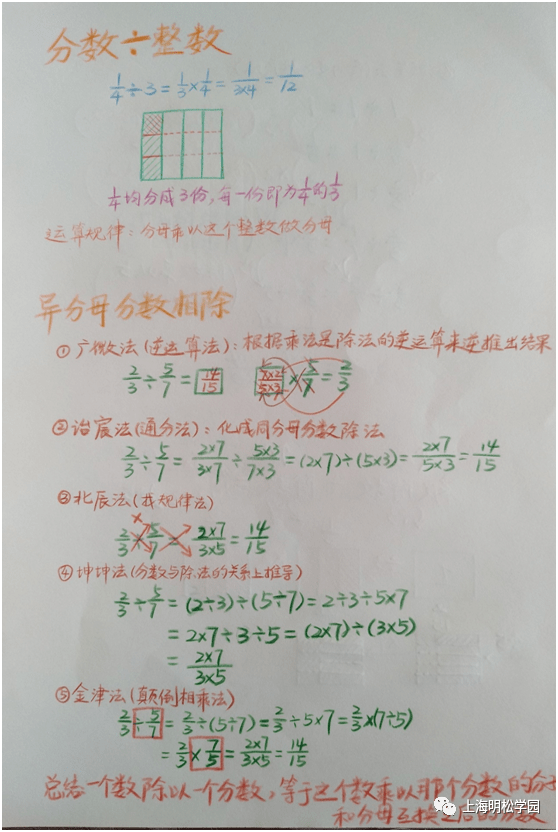 分数÷整数
1/4÷3=1/3×1/4=1/3×4=1/12
1/4均分成3份,每一份即为1/4的1/3
运算规律:分母乘以这个整数做分母
异分母分数相除
①广微法(逆运算法):根据乘法是除法的逆运算来逆推出结果
2/3÷5/7=14/15 7×2/5×3×5/7=2/3
②诒宸法(通分法):化成同分母分数除法
2/3÷5/7=2×7/3×7÷5×3/7×3=(2×7)÷(5×3)=2×7/5×3=14/15
③北辰法(找规律法)
2/3÷5/7=2×7/3×5=14/15
④坤坤法(分数与除法的关系上推导)
2/3÷5/7=(2÷3)÷(5÷7)=2÷3÷5×7
=2×7÷3÷5=(2×7)÷(3×5)
=2×7/3×5
⑤金津法(颠倒相乘法)
2/3÷5/7=2/3÷(5÷7)=2/3÷5×7=2/3×(7÷5)
=2/3×7/5=2×7/3×5=14/15
总结一个数除以一个分数,等于这个数乘以那个分数的分子
和分母互换之后的分数
上海明松学园